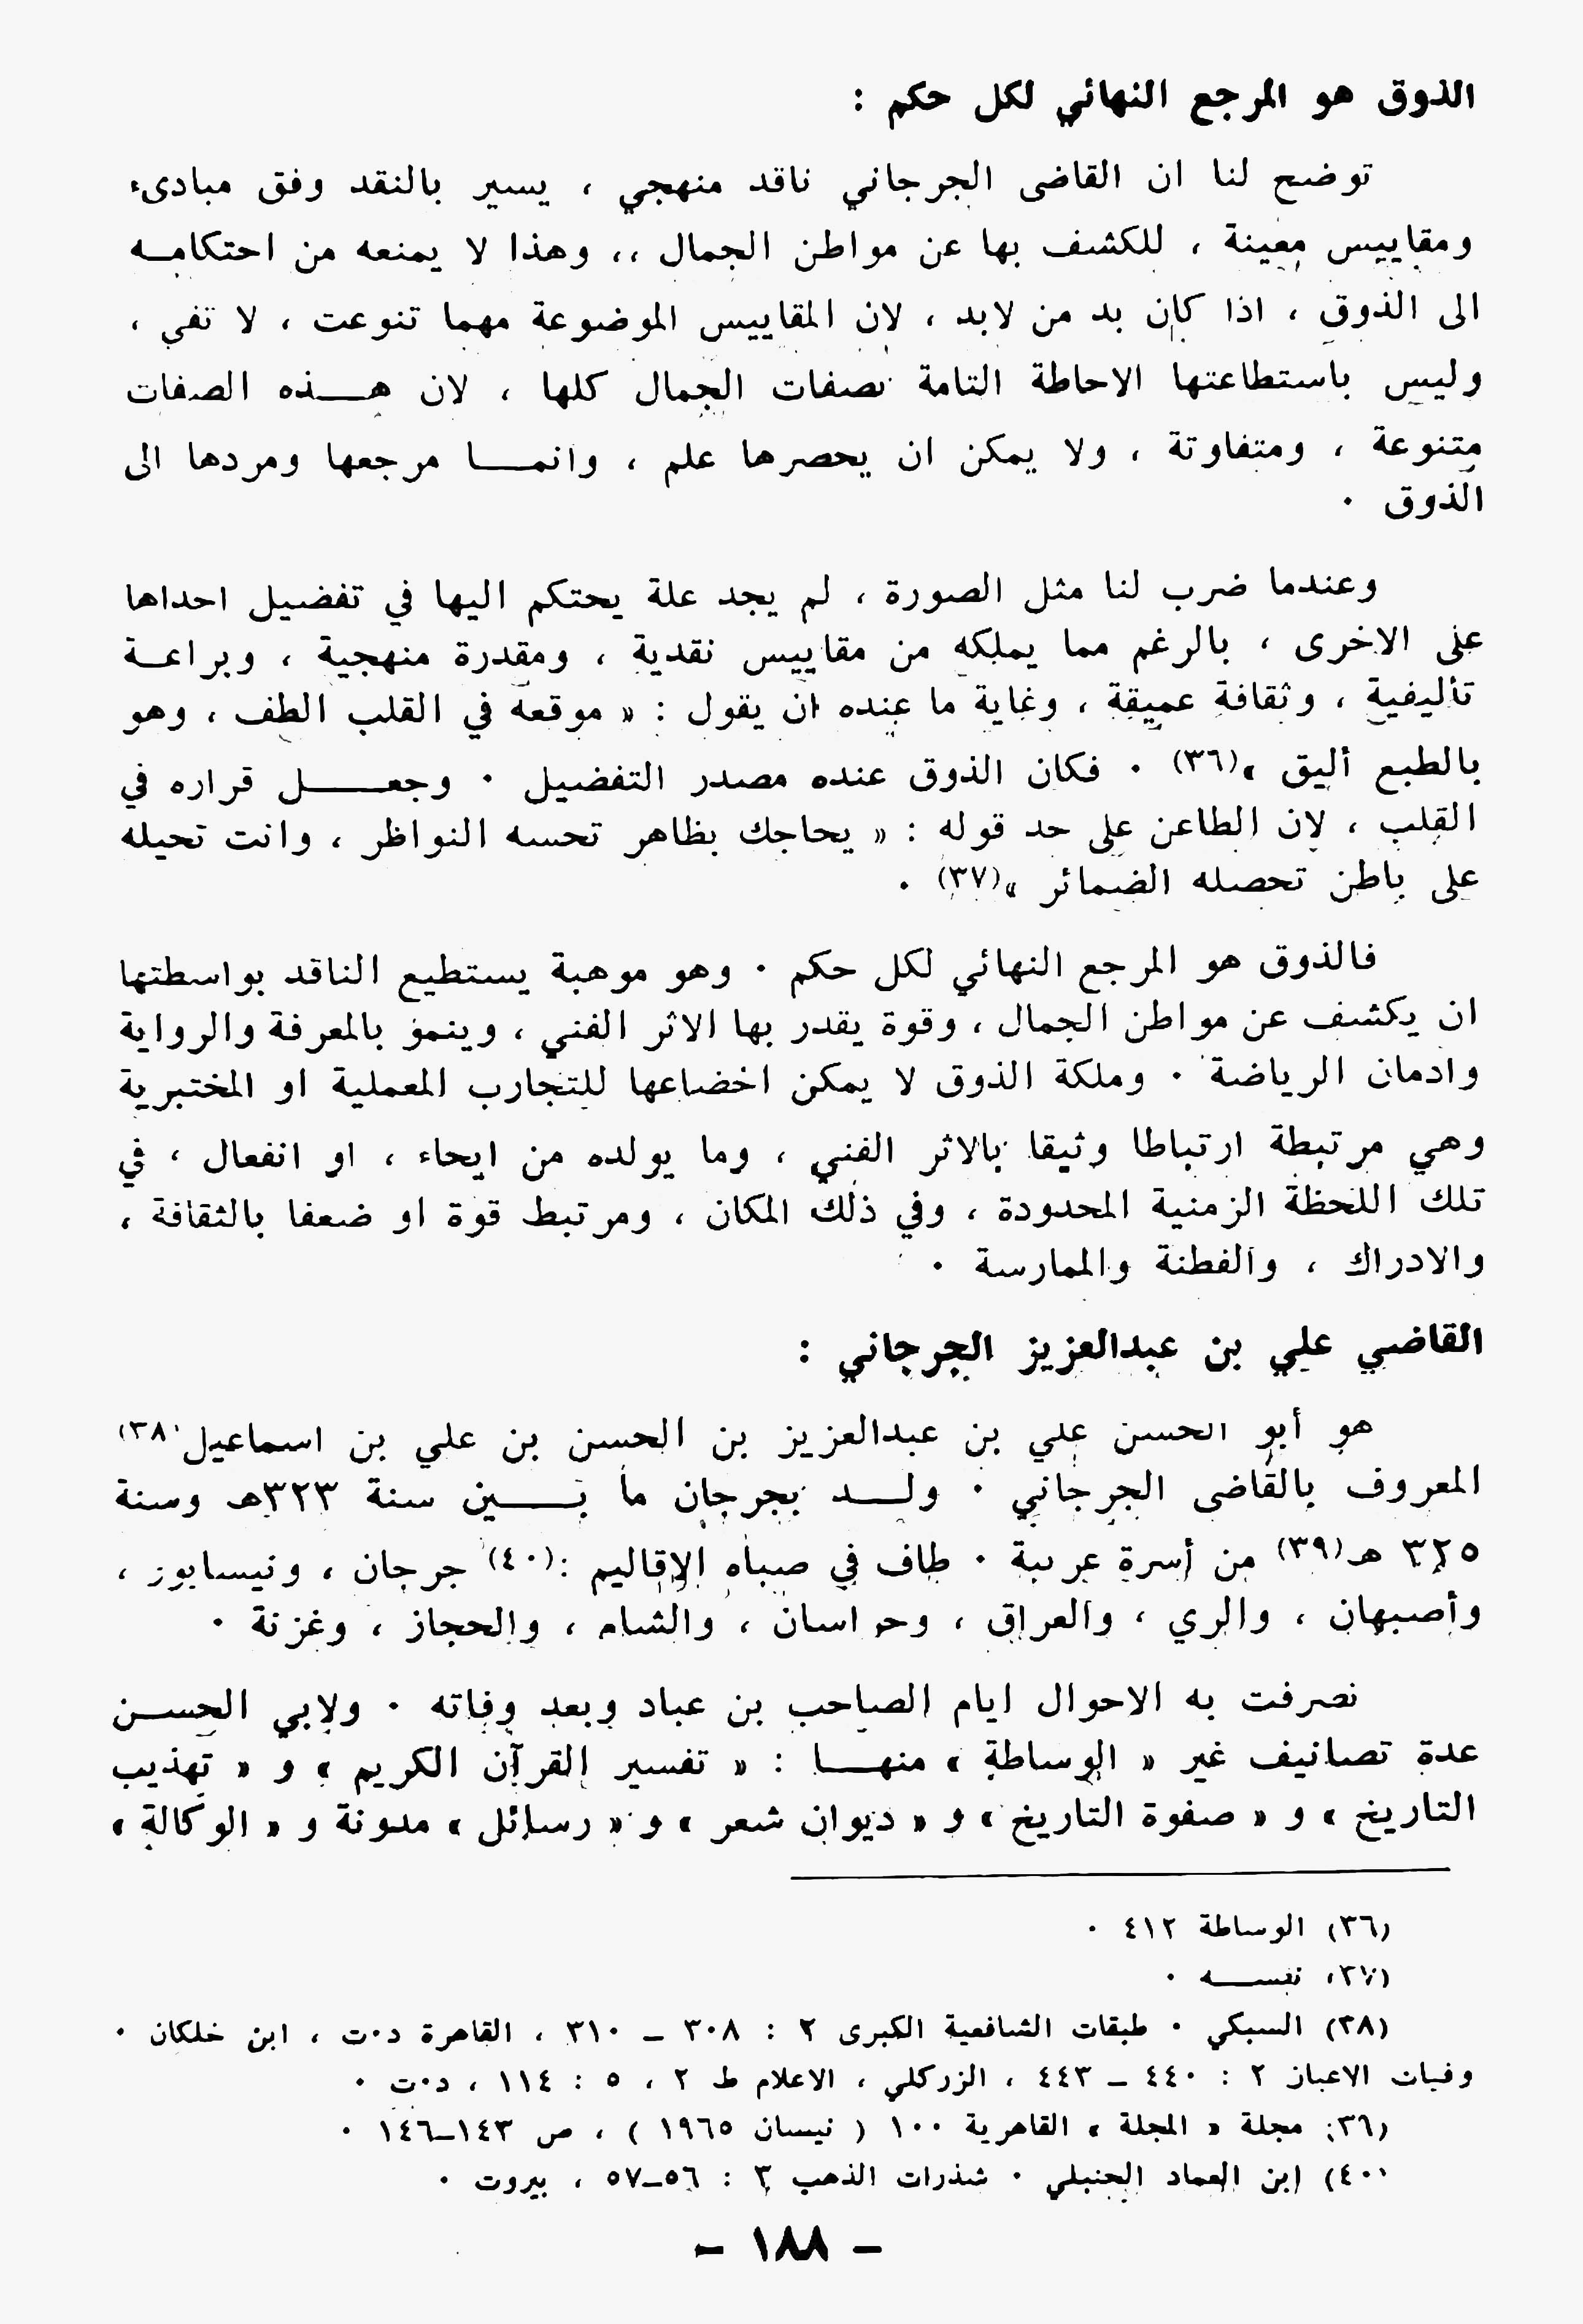 الذوق هو المرجع النهائي لكل حكم :
توضح لنا ان القاضى الجرجاني ناقد منهجي ، يسير بالنقد وفق مبادىء
ومقاييس معينة ، للكشف بها عن مواطن الجمال ،، وهذا لا يمنعه من احتكامه
الى الذوق ، اذا كان بد من لابد ، لان المقاييس الموضوعة مهما تنوعت ، لا تفي ،
وليس باستطاعتها الاحاطة التامة بصفات الجمال كلها ، لان هذه الصفات
متنوعة ، ومتفاوتة ، ولا يمكن ان يحصرها علم ، وانما مرجعها ومردها الى
الذوق ٠
وعندما ضرب لنا مثل الصورة ، لم يجد علة يحتكم اليها في تفضيل احداها
على الاخرى ، بالرغم مما يملكه من مقاييس نقدية ، ومقدرة منهجية ، وبراعة
تأليفية ، وثقافة عميقة ، وغاية ما عنده ان يقول : « موقعه في القلب الطف ، وهو
بالطبع أليق »(٣٦) ٠ فكان الذوق عنده مصدر التفضيل ٠ وجعل قراره في
القلب ، لان الطاعن على حد قوله : « يحاجك بظاهر تحسه النواظر ، وانت تحيله
على باطن تحصله الضمائر »(٣٧) ٠
فالذوق هو المرجع النهائي لكل حكم ٠ وهو موهبة يستطيع الناقد بواسطتها
ان يكشف عن مواطن الجمال ، وقوة يقدر بها الاثر الفني ، وينمو بالمعرفة والرواية
وادمان الرياضة ٠ وملكة الذوق لا يمكن اخضاعها للتجارب المعملية او المختبرية
وهي مرتبطة ارتباطا وثيقا بالاثر الفني ، وما يولده من ايحاء ، او انفعال ، في
تلك اللحظة الزمنية المحدودة ، وفي ذلك المكان ، ومرتبط قوة او ضعفا بالثقافة ،
والادراك ، والفطنة والممارسة ٠
القاضي علي بن عبدالعزيز الجرجاني :
هو أبو الحسن علي بن عبدالعزيز بن الحسن بن علي بن اسماعيل (٣٨)
المعروف بالقاضى الجرجاني ٠ ولد بجرجان ما بين سنة ٣٢٣هـ وسنة
٣٢٥ هـ(٣٩) من أسرة عربية ٠ طاف في صباه الاقاليم :(٤٠) جرجان ، ونيسابور ،
وأصبهان ، والري ، والعراق ، وخراسان ، والشام ، والحجاز ، وغزنة ٠
تصرفت به الاحوال ايام الصاحب بن عباد وبعد وفاته ٠ ولابي الحسن
عدة تصانيف غير « الوساطة » منها : « تفسير القرآن الكريم » و « تهذيب
التاريخ » و « صفوة التاريخ » و « ديوان شعر » و « رسائل » مدونة و « الوكالة »
(٣٦) الوساطة ٤١٢ ٠
(٣٧) نفسه ٠
(٣٨) السبكي ٠ طبقات الشافعية الكبرى ٢ : ٣٠٨ ـ ٣١٠ ، القاهرة د٠ت ، ابن خلكان ٠
وفيات الاعيان ٢ : ٤٤٠ ـ ٤٤٣ ، الزركلي ، الاعلام ط ٢ ، ٥ : ١١٤ ، د٠ت ٠
(٣٩) مجلة « المجلة » القاهرية ١٠٠ ( نيسان ١٩٦٥ ) ، ص ١٤٣ـ١٤٦ ٠
(٤٠) ابن العماد الحنبلي ٠ شذرات الذهب ٣ : ٥٦ـ٥٧ ، بيروت ٠
ـ ١٨٨ ـ